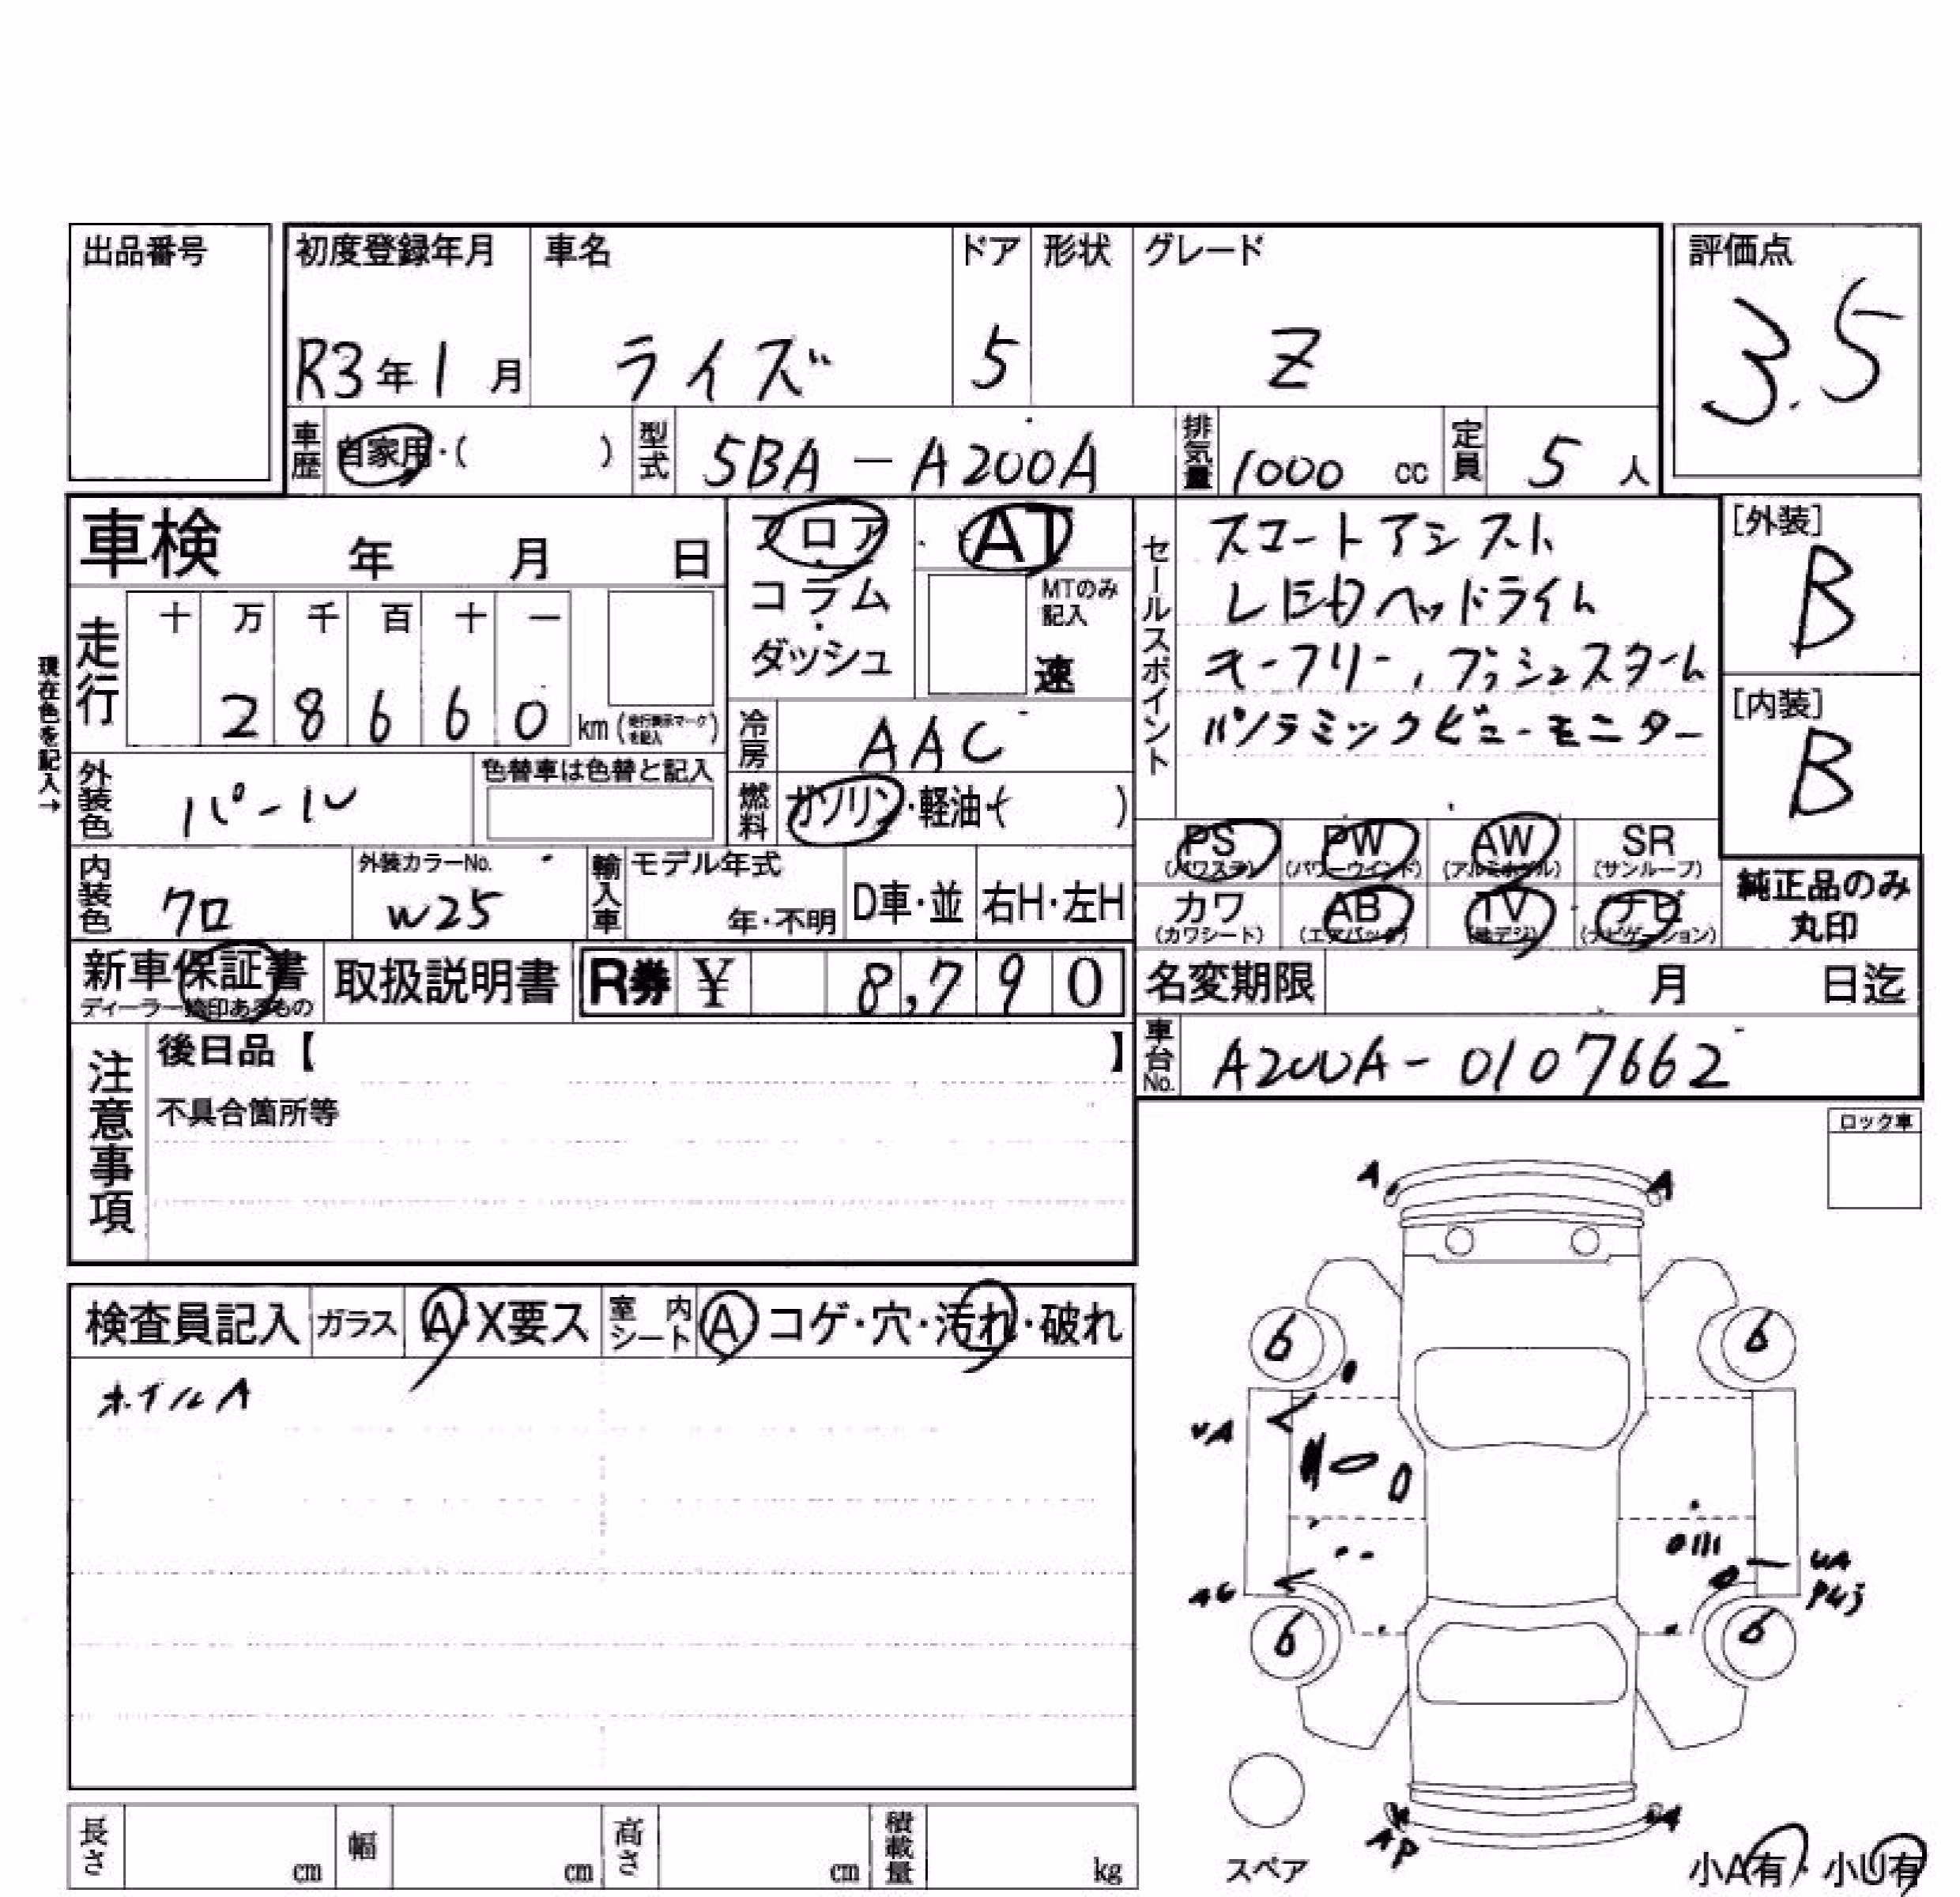 出品番号
初度登録年月 車名 ドア 形状 グレード 評価点
R3年1月 ライズ 5 Z 3.5
車歴 自家用・( ) 型式 5BA-A200A 排気量 1000 cc 定員 5 人
車検 年 月 日
フロア AT
コラム MTのみ記入
ダッシュ 速
セールスポイント
スマートアシスト
LEDヘッドライト
キーフリー,プッシュスタート
パノラミックビューモニター
[外装]
B
[内装]
B
現在色を記入→
走行 十 万 千 百 十 一
2 8 6 6 0 km (走行表示マークを記入)
冷房 AAC
燃料 ガソリン・軽油・( )
外装色 パール 色替車は色替と記入
内装色 クロ 外装カラーNo. W25
輸入車 モデル年式 年・不明 D車・並 右H・左H
PS (パワステ) PW (パワーウインド) AW (アルミホイル) SR (サンルーフ)
カワ (カワシート) AB (エアバック) TV (地デジ) ナビ (ナビゲーション)
純正品のみ
丸印
新車保証書 取扱説明書 R券 ¥ 8,790
名変期限 月 日迄
車台No. A200A-0107662
注意事項
後日品【 】
不具合箇所等
ロック車
検査員記入 ガラス A・X要ス 室内シート A コゲ・穴・汚れ・破れ
ホイルA
A A
6 6
UA
AG
UA
6 6
AP A
スペア
小A有・小U有
長さ cm 幅 cm 高さ cm 積載量 kg